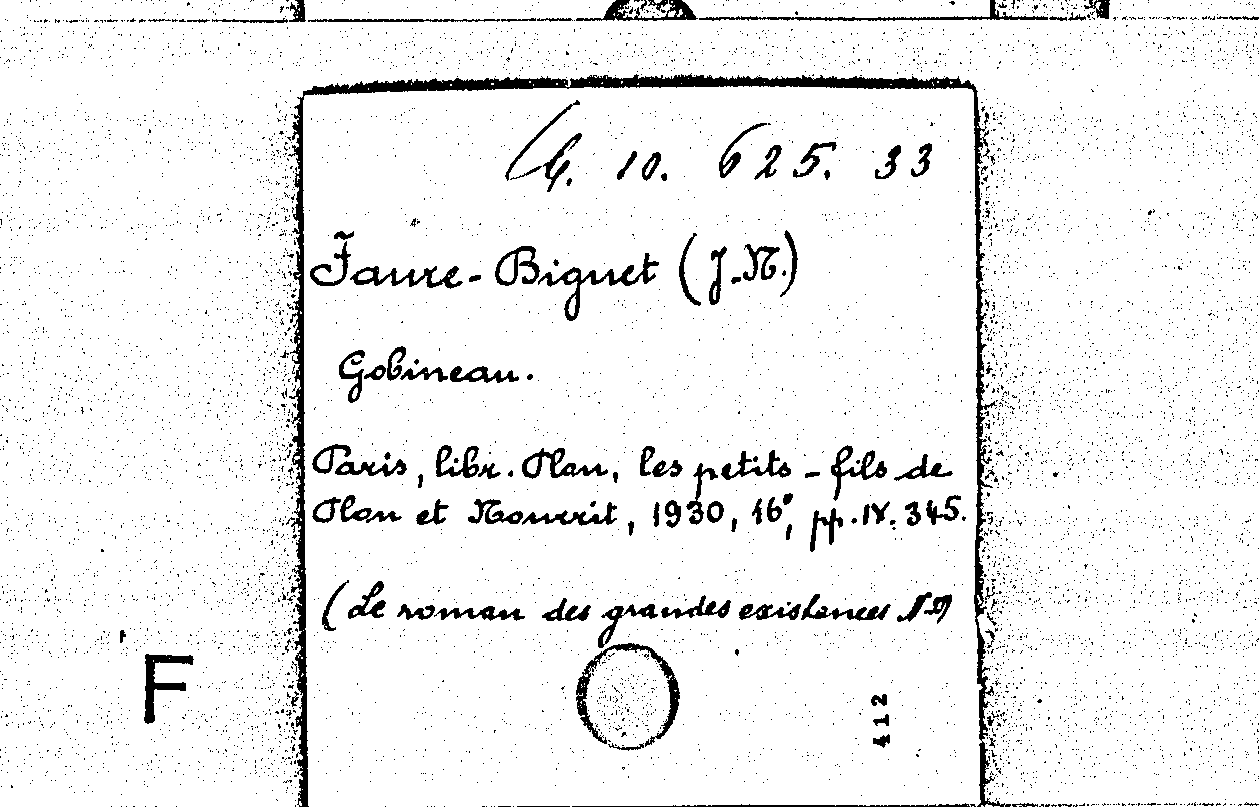 10. 625. 33
Faure-Biguet (J.-N.)
Gobineau.
Paris, libr. Plon, les petits-fils de
Plon et Nourrit, 1930, 16°, pp. IV. 345.
(Le roman des grandes existences
F
412